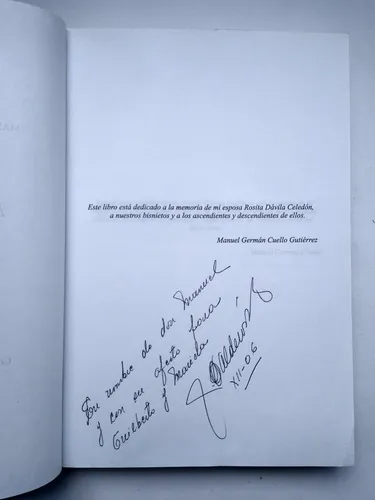 Este libro está dedicado a la memoria de mi esposa Rosita Dávila Celedón,
a nuestros bisnietos y a los ascendientes y descendientes de ellos.
Manuel Germán Cuello Gutiérrez
En nombre de don Manuel
y con su afecto para
y
XII-06